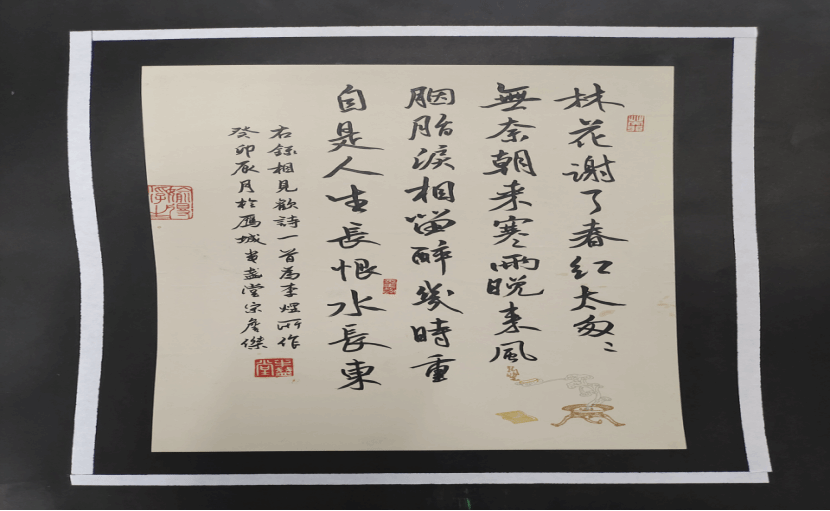 林花謝了春紅太匆〻
無奈朝来寒雨晚来風
胭脂淚相留醉幾時重
自是人生長恨水長東
右錄相見歡詩一首為李煜所作
癸卯辰月於雁城半盞堂宗傑
半盞堂